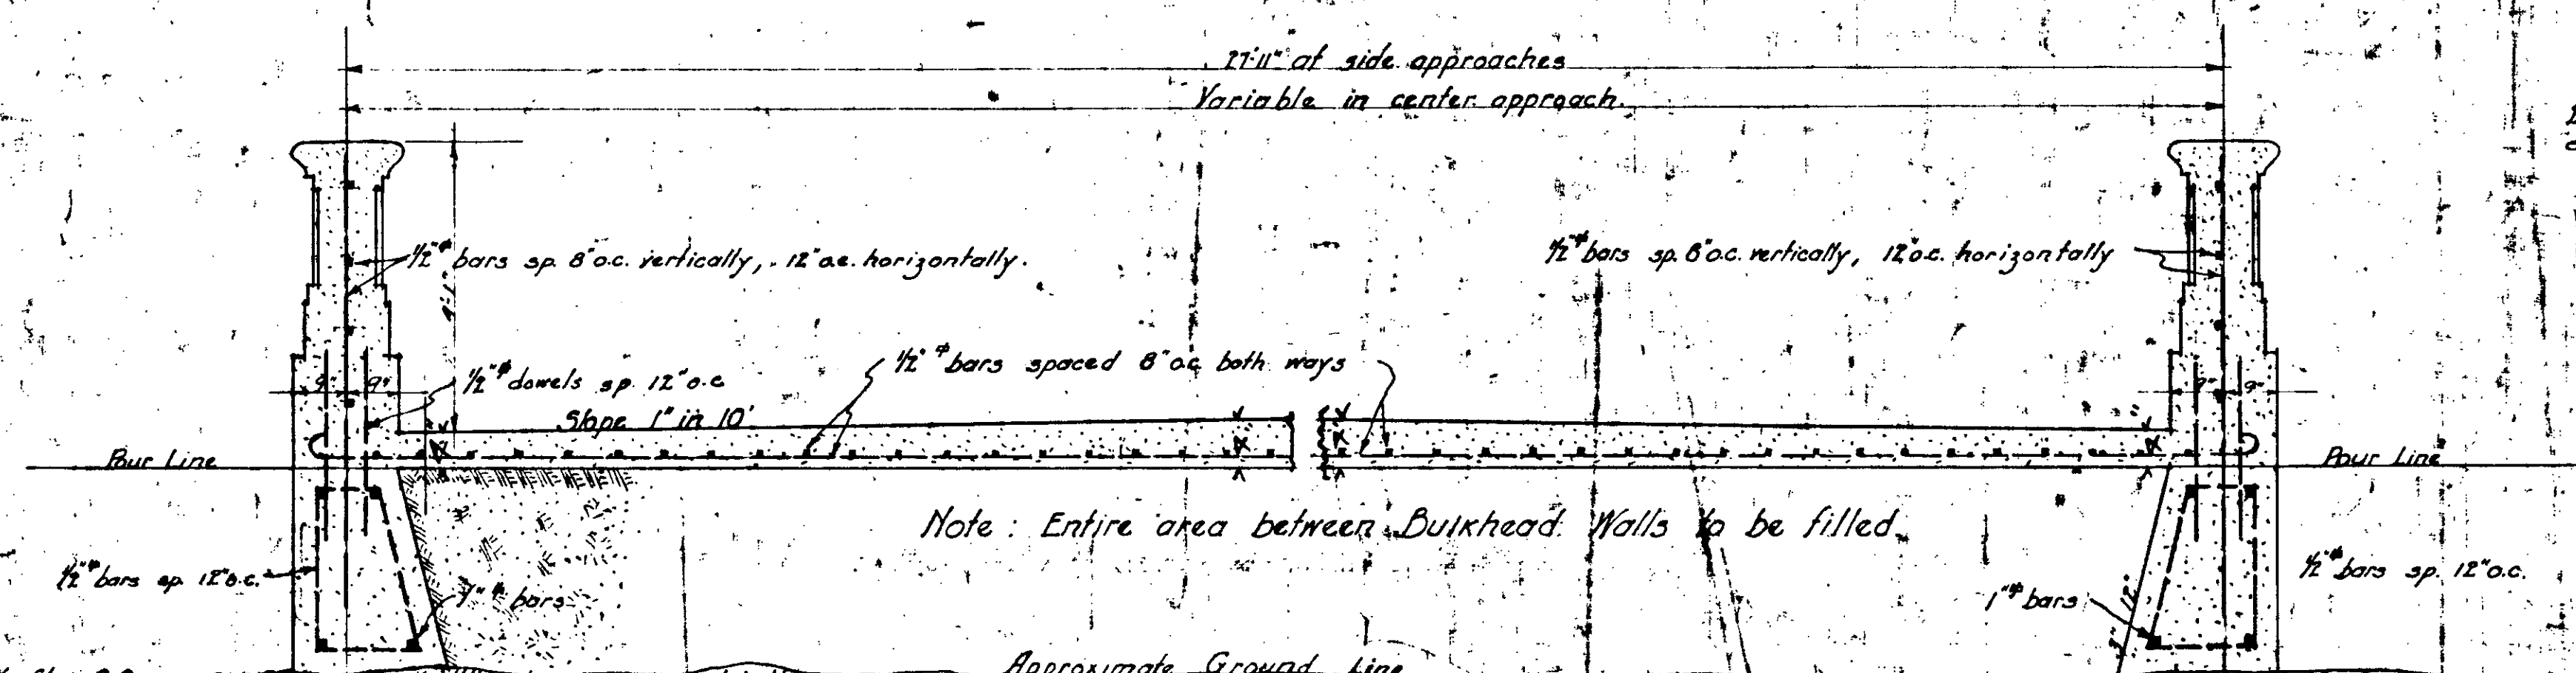 27'-11" at side approaches
Variable in center approach.
1/2"ϕ bars sp. 8" o.c. vertically, 12" o.c. horizontally.
1/2"ϕ bars sp. 8" o.c. vertically, 12" o.c. horizontally
1/2"ϕ bars spaced 8" o.c. both ways
1/2"ϕ dowels sp. 12" o.c
9" 9"
9" 9"
Slope 1" in 10'
Pour Line
Pour Line
Note: Entire area between Bulkhead Walls to be filled.
1/2"ϕ bars sp. 12" o.c.
1"ϕ bars
1"ϕ bars
1/2"ϕ bars sp. 12" o.c.
Approximate Ground Line